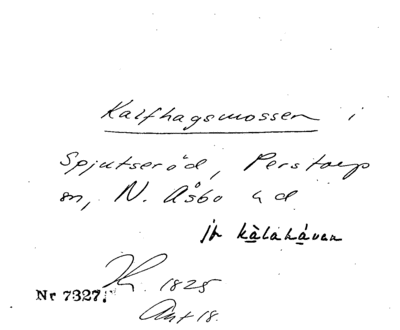 Kalfhagsmossen i
Spjutseröd, Perstorp
sn, N. Åsbo hd
jfr kàlahávan
1825
Nr 7327.
Akt 18.